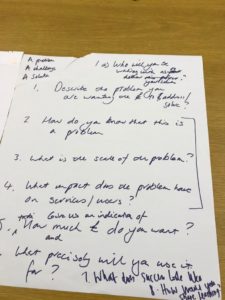 A problem
A challenge
A solution
1 a) Who will you be
working with as
1. Describe the problem you
are wanting the to address/
solve?
2 How do you know that this is
a problem
3. What is the scale of the problem?
4. What impact does the problem have
on services/users?
5. Give us an indication of
How much £ do you want?
and
What precisely will you use it
for?
7. What does success look like
8. How will you